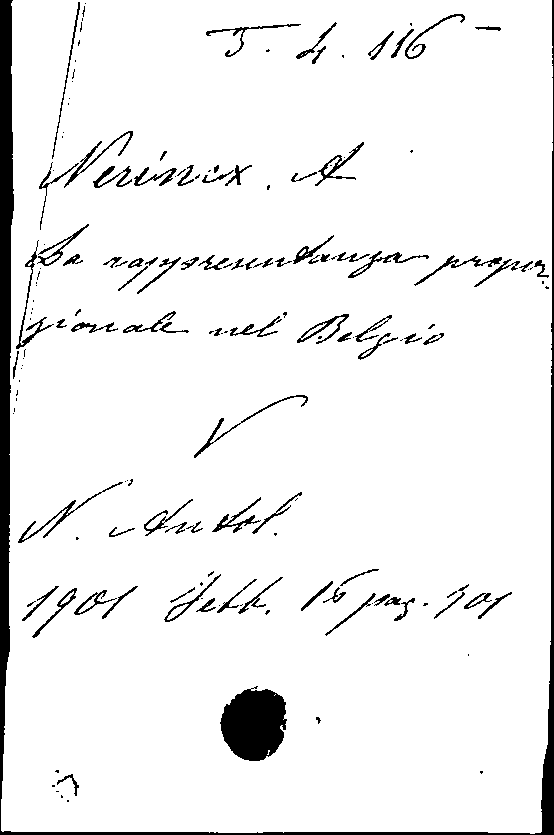 5. 4. 116
Nerincx. A
La rappresentanza propor
zionale nel Belgio
V
N. Antol.
1901 Febb. 16 pag. 701